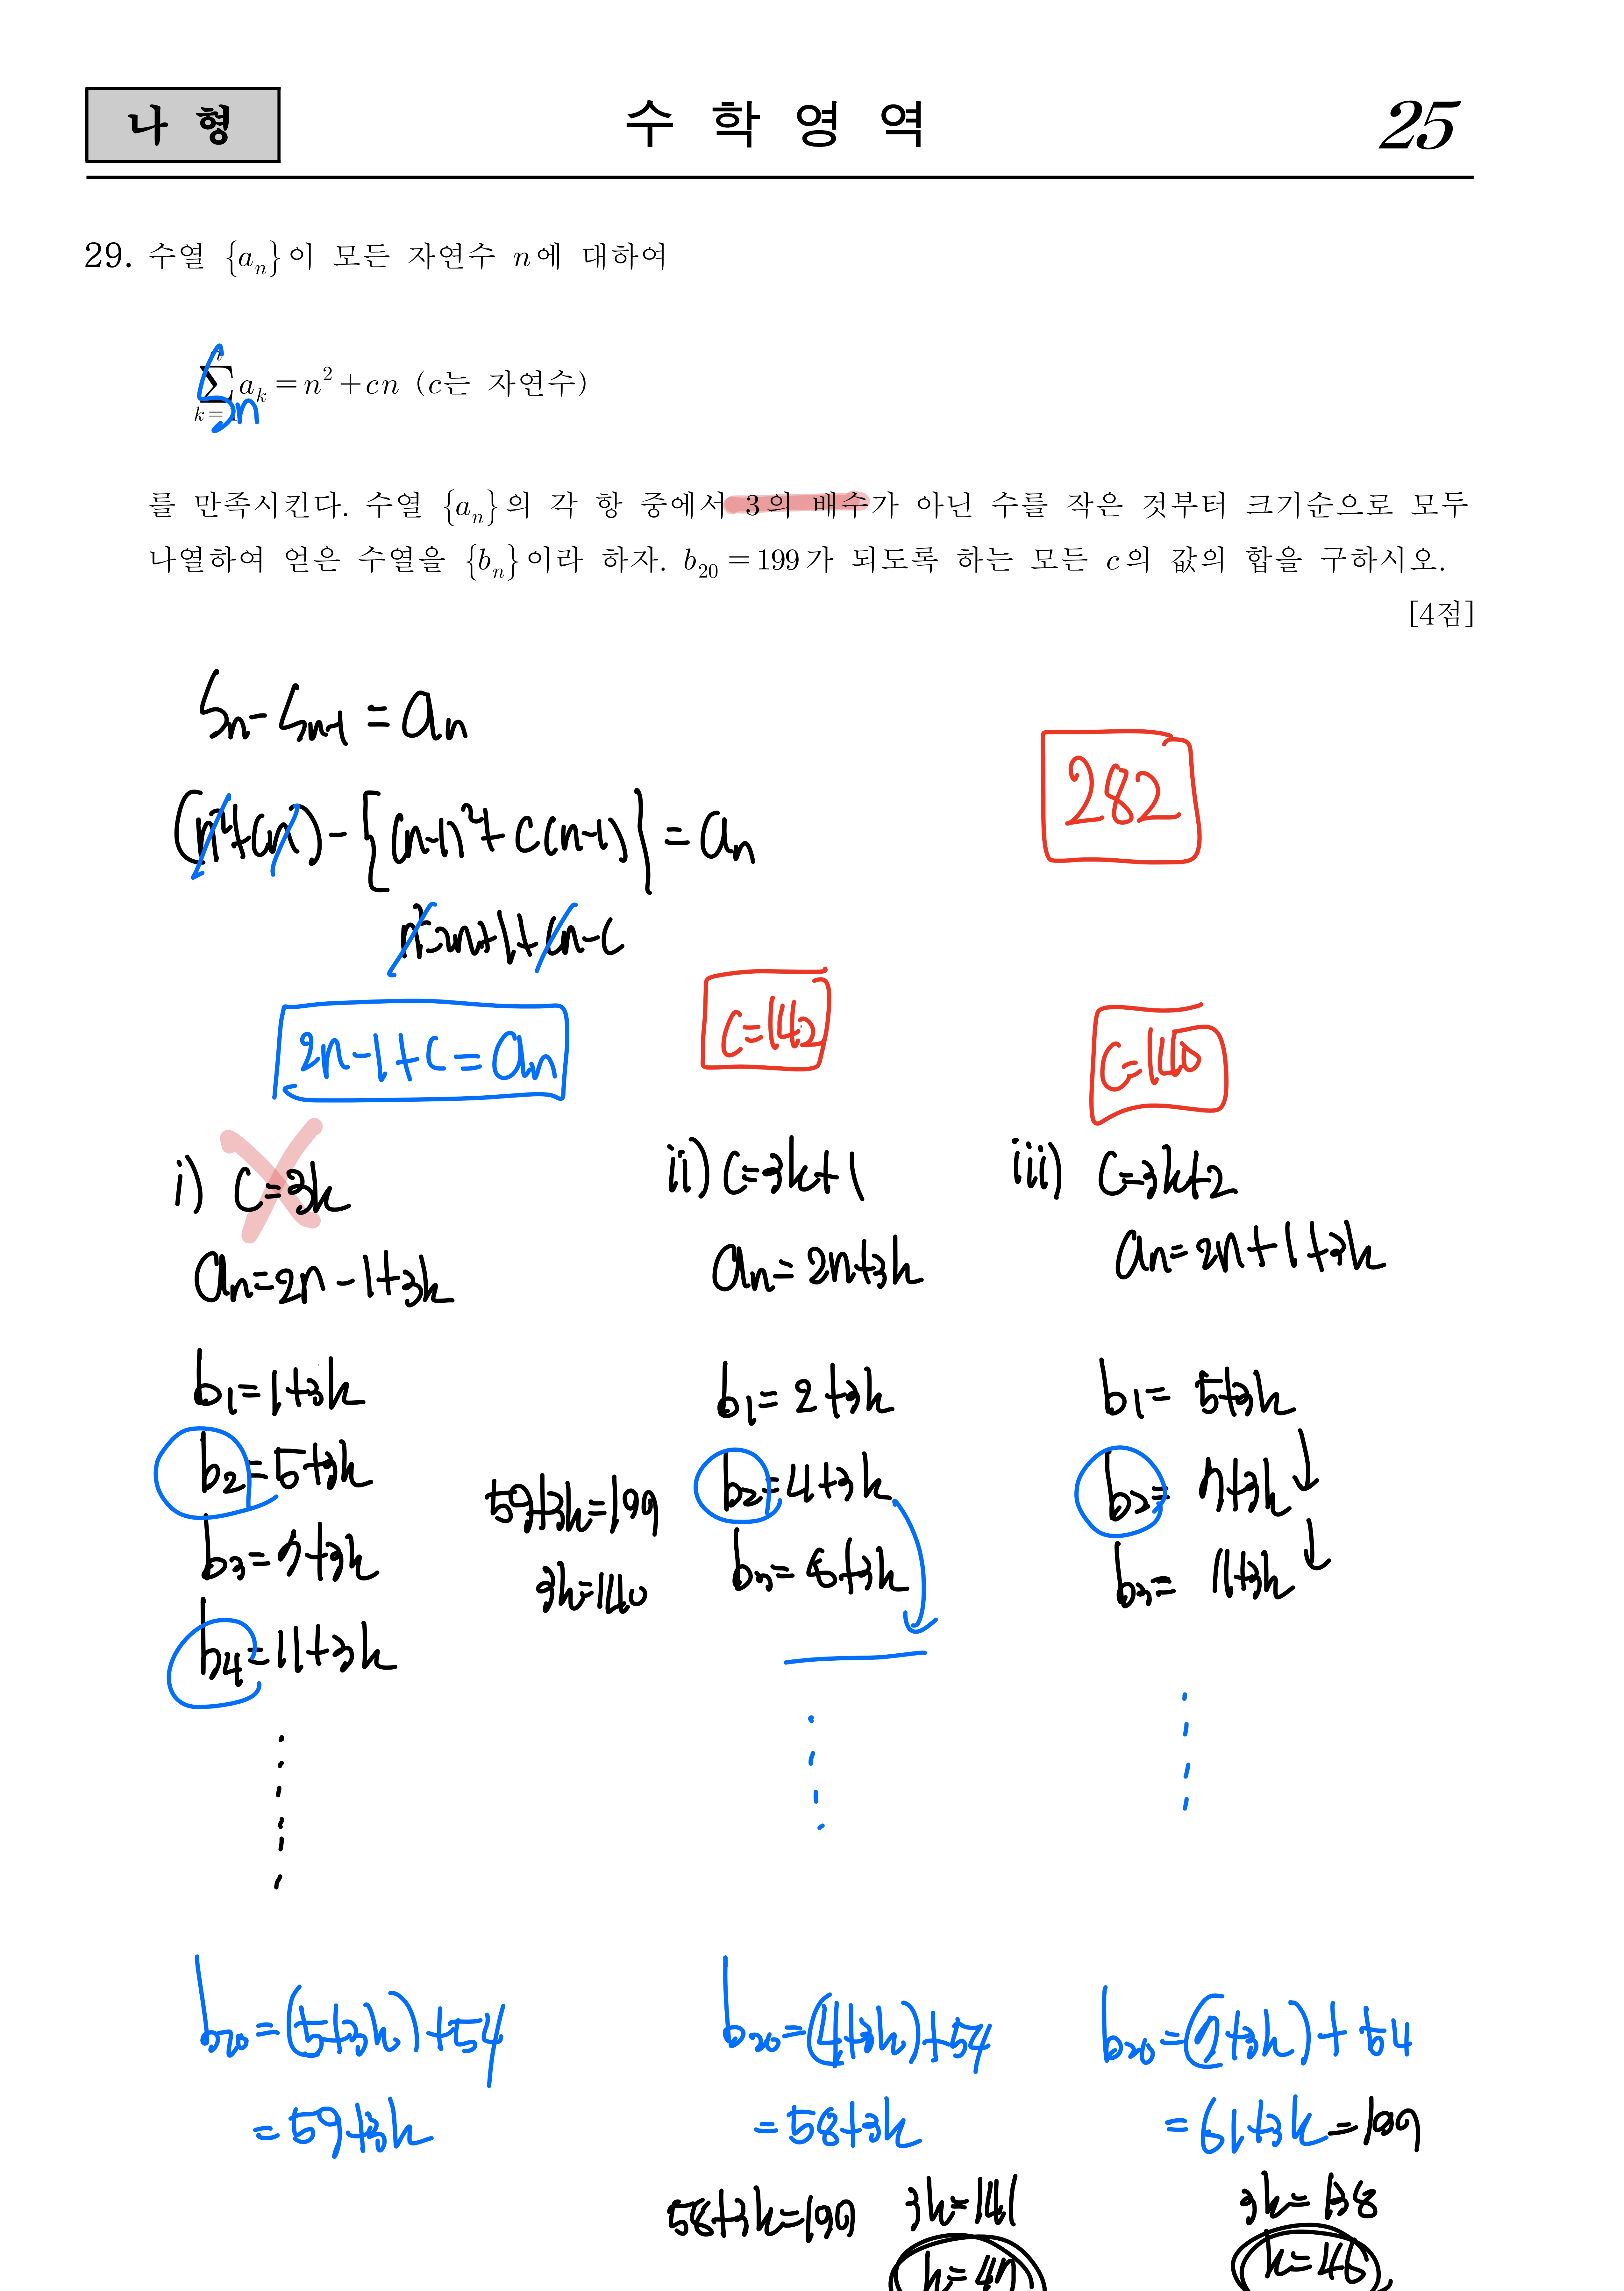 나 형
수 학 영 역
25
29. 수열 {aₙ}이 모든 자연수 n에 대하여
aₖ = n² + cn (c는 자연수)
Sₙ
를 만족시킨다. 수열 {aₙ}의 각 항 중에서 3의 배수가 아닌 수를 작은 것부터 크기순으로 모두
나열하여 얻은 수열을 {bₙ}이라 하자. b₂₀ = 199가 되도록 하는 모든 c의 값의 합을 구하시오.
[4점]
Sₙ - Sₙ₋₁ = aₙ
282
(n²+cn) - {(n-1)² + c(n-1)} = aₙ
n²-2n+1+cn-c
2n-1+c = aₙ
c=142
c=140
i) c=3k
aₙ=2n-1+3k
b₁=1+3k
b₂=5+3k
b₃=7+3k
b₄=11+3k
b₂₀=(5+3k)+54
=59+3k
59+3k=199
3k=140
ii) c=3k+1
aₙ=2n+3k
b₁=2+3k
b₂=4+3k
b₃=6+3k
b₂₀=(4+3k)+54
=58+3k
58+3k=199
3k=141
k=47
iii) c=3k+2
aₙ=2n+1+3k
b₁=5+3k
b₂=7+3k
b₃=11+3k
b₂₀=(7+3k)+54
=61+3k=199
3k=138
k=46